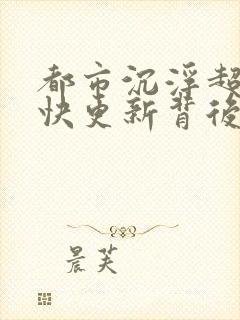 都市沉浮超
快更新背後
晨芙